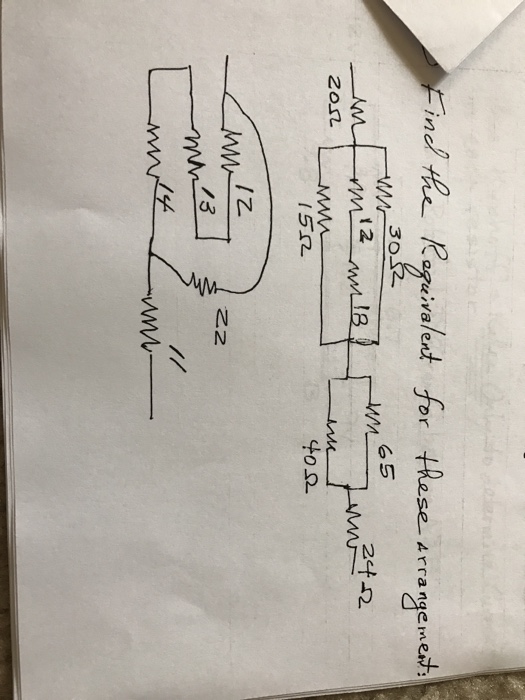 Find the Requivalent for these Arrangement:
30Ω
65
20Ω 12 18 24Ω
15Ω 40Ω
12
13 22
14 11